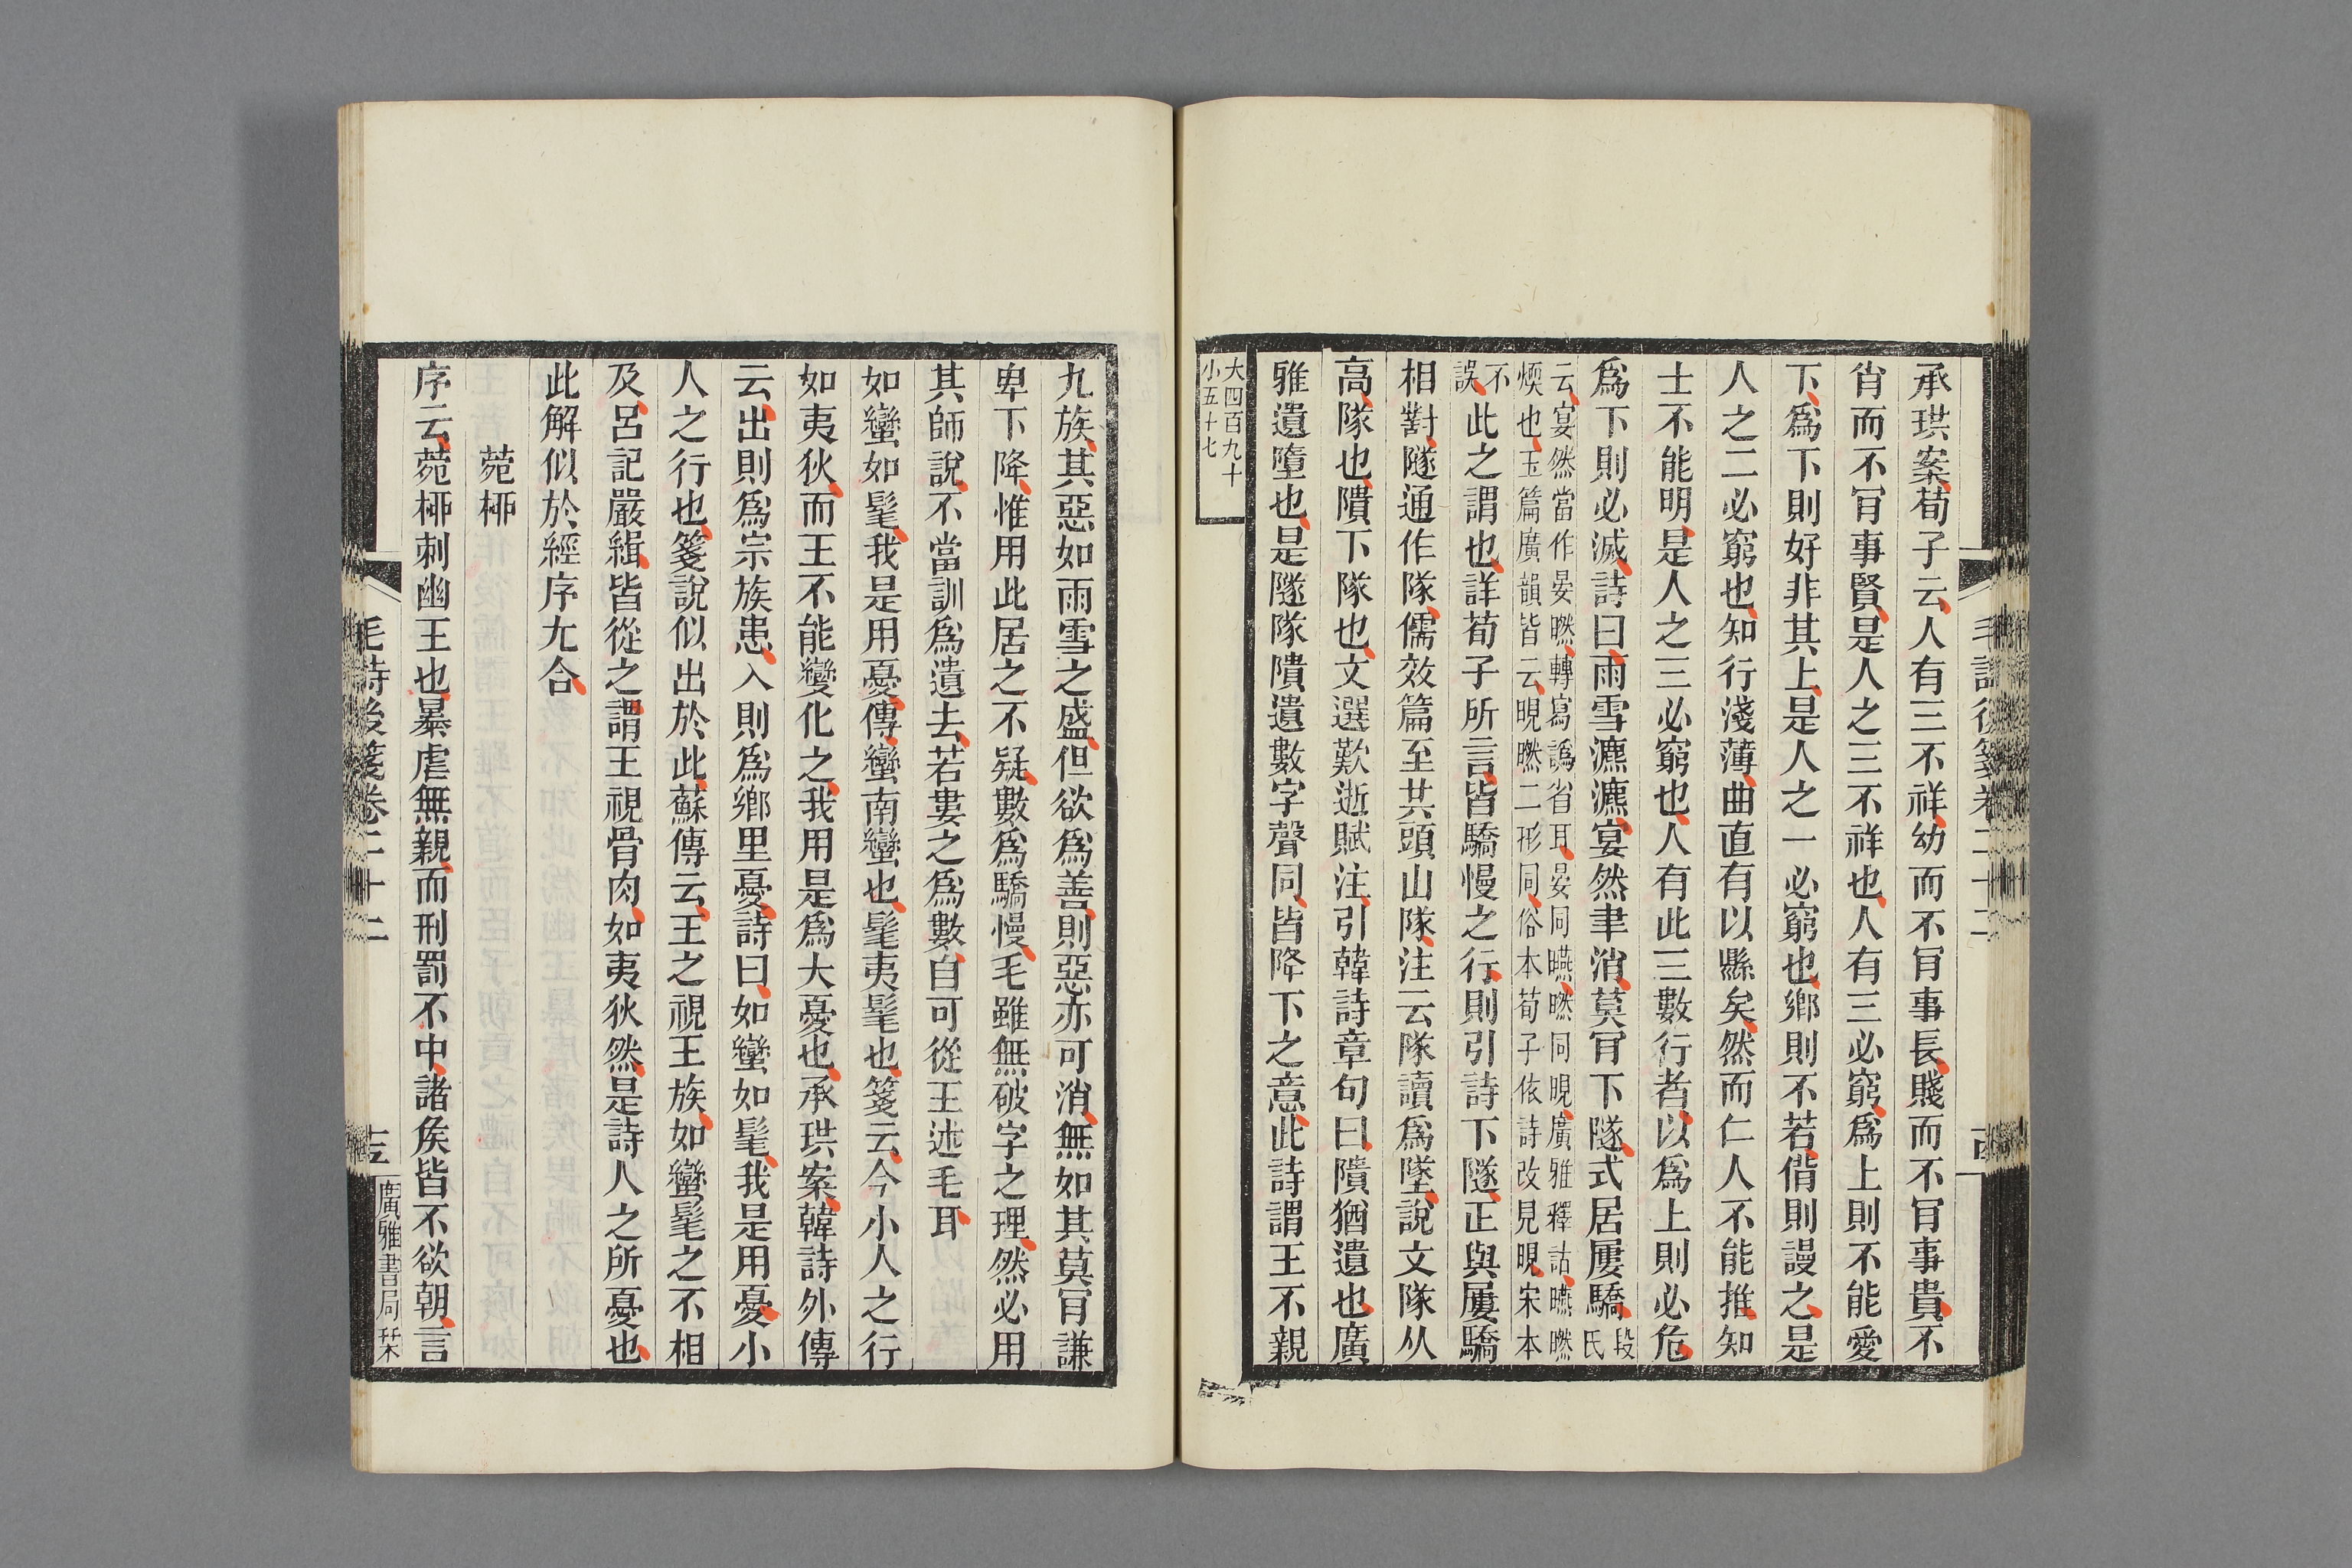 承珙案荀子云人有三不祥幼而不肎事長賤而不肎事貴不
肖而不肎事賢是人之三不祥也人有三必窮爲上則不能愛
下爲下則好非其上是人之一必窮也鄉則不若偝則謾之是
人之二必窮也知行淺薄曲直有以縣矣然而仁人不能推知
士不能明是人之三必窮也人有此三數行者以爲上則必危
爲下則必滅詩曰雨雪瀌瀌宴然聿消莫肎下隧式居屢驕段氏
云宴然當作晏㬗轉寫譌省耳晏同曣㬗同晛廣雅釋詁曣㬗
㬉也玉篇廣韻皆云晛㬗二形同俗本荀子依詩改見晛宋本
不誤此之謂也詳荀子所言皆驕慢之行則引詩下隧正與屢驕
相對隧通作隊儒效篇至共頭山隊注云隊讀爲墜說文隊从
高隊也隤下隊也文選歎逝賦注引韓詩章句曰隤猶遺也廣
雅遺墮也是隧隊隤遺數字聲同皆降下之意此詩謂王不親
大四百九十
小五十七
毛詩後箋卷二十二
九族其惡如雨雪之盛但欲爲善則惡亦可消無如其莫肎謙
卑下降惟用此居之不疑數爲驕慢毛雖無破字之理然必用
其師說不當訓爲遺去若婁之爲數自可從王述毛耳
如蠻如髦我是用憂傳蠻南蠻也髦夷髦也箋云今小人之行
如夷狄而王不能變化之我用是爲大憂也承珙案韓詩外傳
云出則爲宗族患入則爲鄉里憂詩曰如蠻如髦我是用憂小
人之行也箋說似出於此蘇傳云王之視王族如蠻髦之不相
及呂記嚴緝皆從之謂王視骨肉如夷狄然是詩人之所憂也
此解似於經序尢合
菀桺
序云菀桺刺幽王也暴虐無親而刑罰不中諸矦皆不欲朝言
毛詩後箋卷二十二
廣雅書局栞